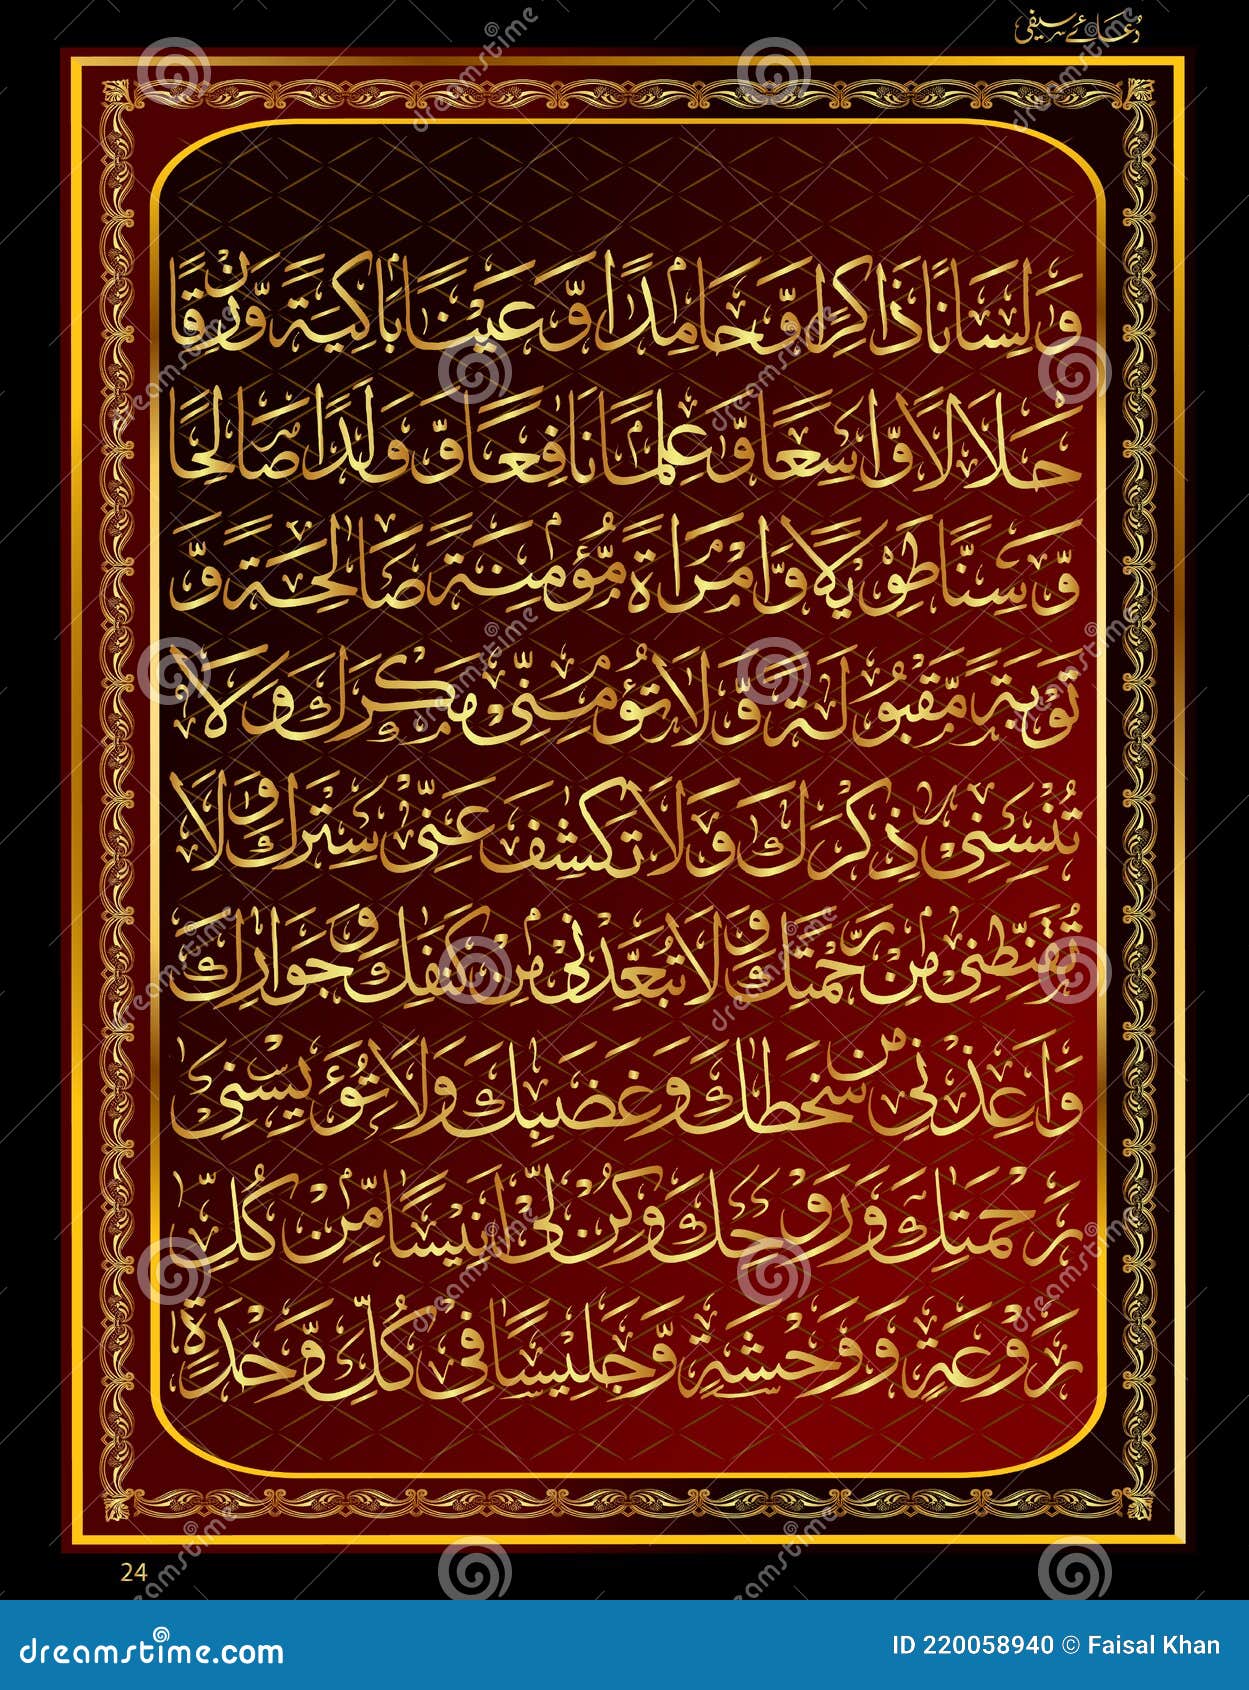 دُعائے سیفی
وَلِسَانًا ذَاكِرًا وَّحَامِدًا وَّعَيْنًا بَاكِيَةً وَّرِزْقًا
حَلَالًا وَّاسِعًا وَّعِلْمًا نَافِعًا وَّوَلَدًا صَالِحًا
وَّسِنًّا طَوِيْلًا وَّامْرَأَةً مُّؤْمِنَةً صَالِحَةً وَّ
تَوْبَةً مَّقْبُوْلَةً وَّلَا تُؤْمِنِّىْ مَكْرَكَ وَلَا
تُنْسِنِىْ ذِكْرَكَ وَلَا تَكْشِفْ عَنِّىْ سِتْرَكَ وَلَا
تُقَنِّطْنِىْ مِنْ رَّحْمَتِكَ وَلَا تُبَعِّدْنِىْ مِنْ كَنَفِكَ وَجَوَارِكَ
وَاَعِذْنِىْ مِنْ سَخَطِكَ وَغَضَبِكَ وَلَا تُؤَيِّسْنِىْ
رَحْمَتِكَ وَرَوْحِكَ وَكُنْ لِّىْ اَنِيْسًا مِّنْ كُلِّ
رَوْعَةٍ وَوَحْشَةٍ وَّجَلِيْسًا فِىْ كُلِّ وَّحْدَةٍ
24
dreamstime.com
ID 220058940 © Faisal Khan